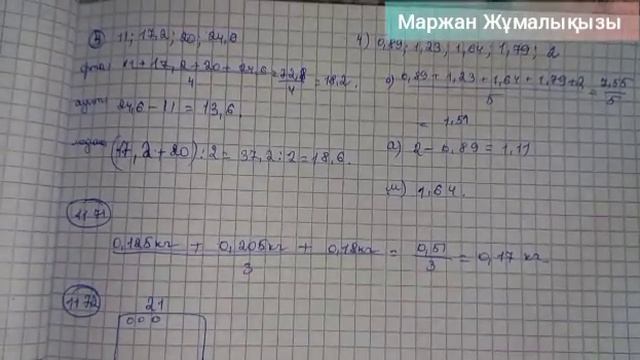 Маржан Жұмалықызы
③ 11; 17,2; 20; 24,6
11 + 17,2 + 20 + 24,6 / 4 = 72,8 / 4 = 18,2.
24,6 - 11 = 13,6.
(17,2 + 20) : 2 = 37,2 : 2 = 18,6.
4) 0,89; 1,23; 1,64; 1,79; 2
0,89 + 1,23 + 1,64 + 1,79 + 2 / 5 = 7,55 / 5
= 1,51
а) 2 - 0,89 = 1,11
м) 1,64.
1171
0,125 кг + 0,205 кг + 0,18 кг / 3 = 0,51 / 3 = 0,17 кг
1172
21
000